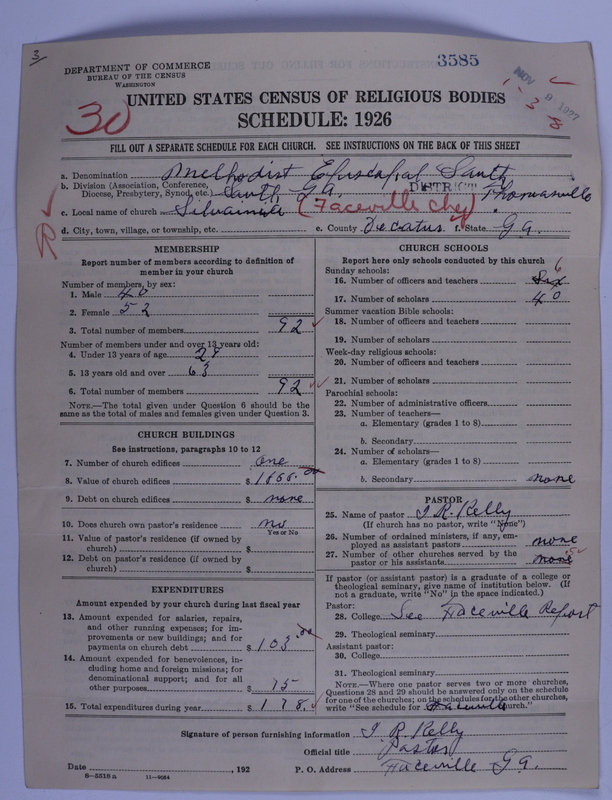 3
DEPARTMENT OF COMMERCE
BUREAU OF THE CENSUS
WASHINGTON
3585
NOV 9 1927
1-3-8
30
UNITED STATES CENSUS OF RELIGIOUS BODIES
SCHEDULE: 1926
FILL OUT A SEPARATE SCHEDULE FOR EACH CHURCH. SEE INSTRUCTIONS ON THE BACK OF THIS SHEET
a. Denomination Methodist Episcopal South
b. Division (Association, Conference, Diocese, Presbytery, Synod, etc.) South Ga. DISTRICT Thomasville
c. Local name of church (Faceville Chg)
d. City, town, village, or township, etc. e. County Decatur f. State Ga.
R
MEMBERSHIP
Report number of members according to definition of
member in your church
Number of members, by sex:
1. Male 40
2. Female 52
3. Total number of members 92
Number of members under and over 13 years old:
4. Under 13 years of age 29
5. 13 years old and over 63
6. Total number of members 92
NOTE.—The total given under Question 6 should be the
same as the total of males and females given under Question 3.
CHURCH BUILDINGS
See instructions, paragraphs 10 to 12
7. Number of church edifices One
8. Value of church edifices $
9. Debt on church edifices $ none
10. Does church own pastor's residence no
Yes or No
11. Value of pastor's residence (if owned by
church) $
12. Debt on pastor's residence (if owned by
church) $
EXPENDITURES
Amount expended by your church during last fiscal year
13. Amount expended for salaries, repairs,
and other running expenses; for im-
provements or new buildings; and for
payments on church debt $ 103.00
14. Amount expended for benevolences, in-
cluding home and foreign missions; for
denominational support; and for all
other purposes $ 75
15. Total expenditures during year $ 178.
CHURCH SCHOOLS
Report here only schools conducted by this church
Sunday schools: 6
16. Number of officers and teachers Six
17. Number of scholars 40
Summer vacation Bible schools:
18. Number of officers and teachers
19. Number of scholars
Week-day religious schools:
20. Number of officers and teachers
21. Number of scholars
Parochial schools:
22. Number of administrative officers
23. Number of teachers—
a. Elementary (grades 1 to 8)
b. Secondary
24. Number of scholars—
a. Elementary (grades 1 to 8)
b. Secondary none
PASTOR
25. Name of pastor J. R. Kelly
(If church has no pastor, write "None")
26. Number of ordained ministers, if any, em-
ployed as assistant pastors none
27. Number of other churches served by the
pastor or his assistants none
If pastor (or assistant pastor) is a graduate of a college or
theological seminary, give name of institution below. (If
not a graduate, write "No" in the space indicated.)
Pastor:
28. College See Faceville Report
29. Theological seminary
Assistant pastor:
30. College
31. Theological seminary
NOTE.—Where one pastor serves two or more churches,
Questions 28 and 29 should be answered only on the schedule
for one of the churches; on the schedules for the other churches,
write "See schedule for Faceville church."
Signature of person furnishing information J. R. Kelly
Official title Pastor
Date , 192 P. O. Address Faceville Ga.
8-5518 a 11-9024